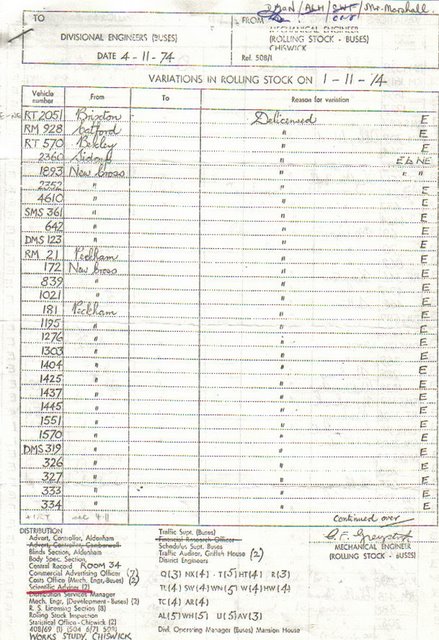 TO
DIVISIONAL ENGINEERS (BUSES)
DATE 4-11-74
FROM
MECHANICAL ENGINEER
(ROLLING STOCK - BUSES)
CHISWICK
Ref. 508/1
VARIATIONS IN ROLLING STOCK ON 1-11-74
Vehicle number From To Reason for variation
RT 2051 Brixton Delicensed E
RM 928 Catford " E
RT 570 Bexley " E
2360 Sidcup " E
1893 New Cross " " "
2352 " " E
4610 " " E
SMS 361 " " E
642 " " E
DMS 123 " " E
RM 21 Peckham " E
172 New Cross " E
839 " " E
1021 " " E
181 Peckham " E
1195 " " E
1276 " " E
1303 " " E
1404 " " E
1425 " " E
1437 " " E
1445 " " E
1551 " " E
1570 " " E
DMS 319 " " E
326 " " E
327 " " E
333 " " E
334 " " E
Continued over
MECHANICAL ENGINEER
(ROLLING STOCK - BUSES)
DISTRIBUTION
Advert. Controller, Aldenham
Advert. Controller, Camberwell
Blinds Section, Aldenham
Body Spec. Section
Central Record ROOM 34
Commercial Advertising Officer (7)
Costs Office (Mech. Engr. Buses) (2)
Scientific Adviser (2)
Distribution Services Manager
Mech. Engr. (Development - Buses) (2)
R. S. Licensing Section (8)
Rolling Stock Inspection
Statistical Office - Chiswick (2)
WORKS STUDY, CHISWICK
Traffic Supt. (Buses)
Financial Research Officer
Schedules Supt. Buses
Traffic Auditor, Griffith House (2)
District Engineers
Q(3) NK(4) T(5) HT(4) R(3)
TL(4) SW(4) WN(5) W(4) HW(4)
TC(4) AR(4)
AL(5) WH(5) U(5) AV(3)
Divl. Operating Manager (Buses) Mansion House